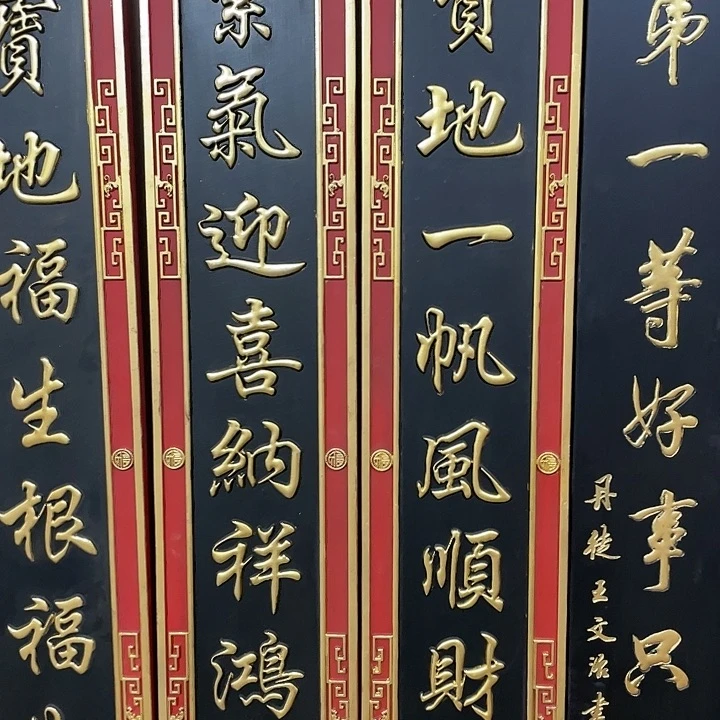 第一等好事只
丹徒王文治書
寶地一帆風順財
紫氣迎喜納祥鴻
寶地福生根福